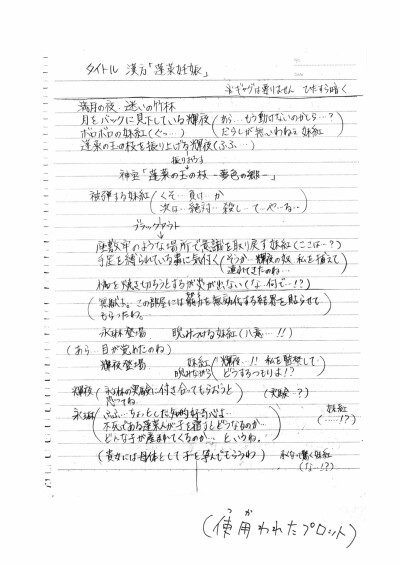 タイトル 漢方「蓬莱妊娠」
※ギャグは要りません ひたすら暗く
満月の夜・迷いの竹林
月をバックに見下している輝夜(あら…もう動けないのかしら…?)
ボロボロの妹紅(ぐっ…) だらしが無いわねぇ妹紅)
蓬莱の玉の枝を振り上げる輝夜(ふふ…)
振りおろす
神宝「蓬莱の玉の枝 -夢色の郷-」
被弾する妹紅(くそ…負け…か
次は…絶対…殺し…て…や…る…)
ブラックアウト
座敷牢のような場所で意識を取り戻す妹紅(ここは…?)
手足を縛られている事に気付く(そうか…輝夜の奴 私を捕えて
連れてきたのね…)
縄を焼き切ろうとするが炎が出ない(な…何で…!?)
(無駄よ。この部屋には能力を無効化する結界を貼らせて
もらったわ。)
永琳登場 睨みつける妹紅(八意…!!)
(あら…目が覚めたのね)
輝夜登場 妹紅 睨みながら(輝夜…!! 私を監禁して
どうするつもりよ!?)
輝夜(永琳の実験に付き合ってもらおうと
思ってね) (実験…?)
永琳(ふふ…ちょっとした知的好奇心よ…
不死である蓬莱人が子を宿すとどうなるのか…
どんな子が産まれてくるのか…というね。) 妹紅(……!?)
(貴女には母体として子を孕んでもらうわ) 妹紅(な…!?)
(使用われたプロット)
つか